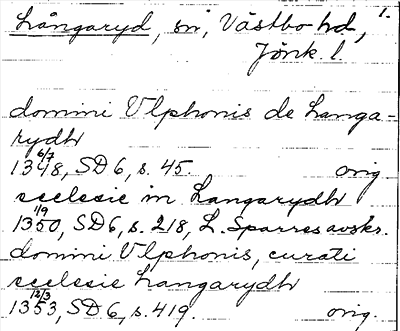 Långaryd, sn, Västbo hd, 1.
Jönk. l.
domini Ulphonis de Langa-
rydh
6/7 1348, SD 6, s. 45. orig.
ecclesie in Langarydh
1/9 1350, SD 6, s. 218, L. Sparres avskr.
domini Ulphonis, curati
ecclesie Langarydh
12/3 1353, SD 6, s. 419. orig.